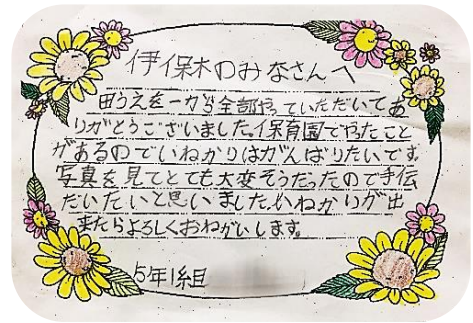 伊保木のみなさんへ
田うえを一から全部やっていただいてあ
りがとうございました。保育園でやったこと
があるのでいねかりはがんばりたいです。
写真を見てとても大変そうだったので手伝
だいたいと思いました。いねかりが出
来たらよろしくおねがいします。
5年1組